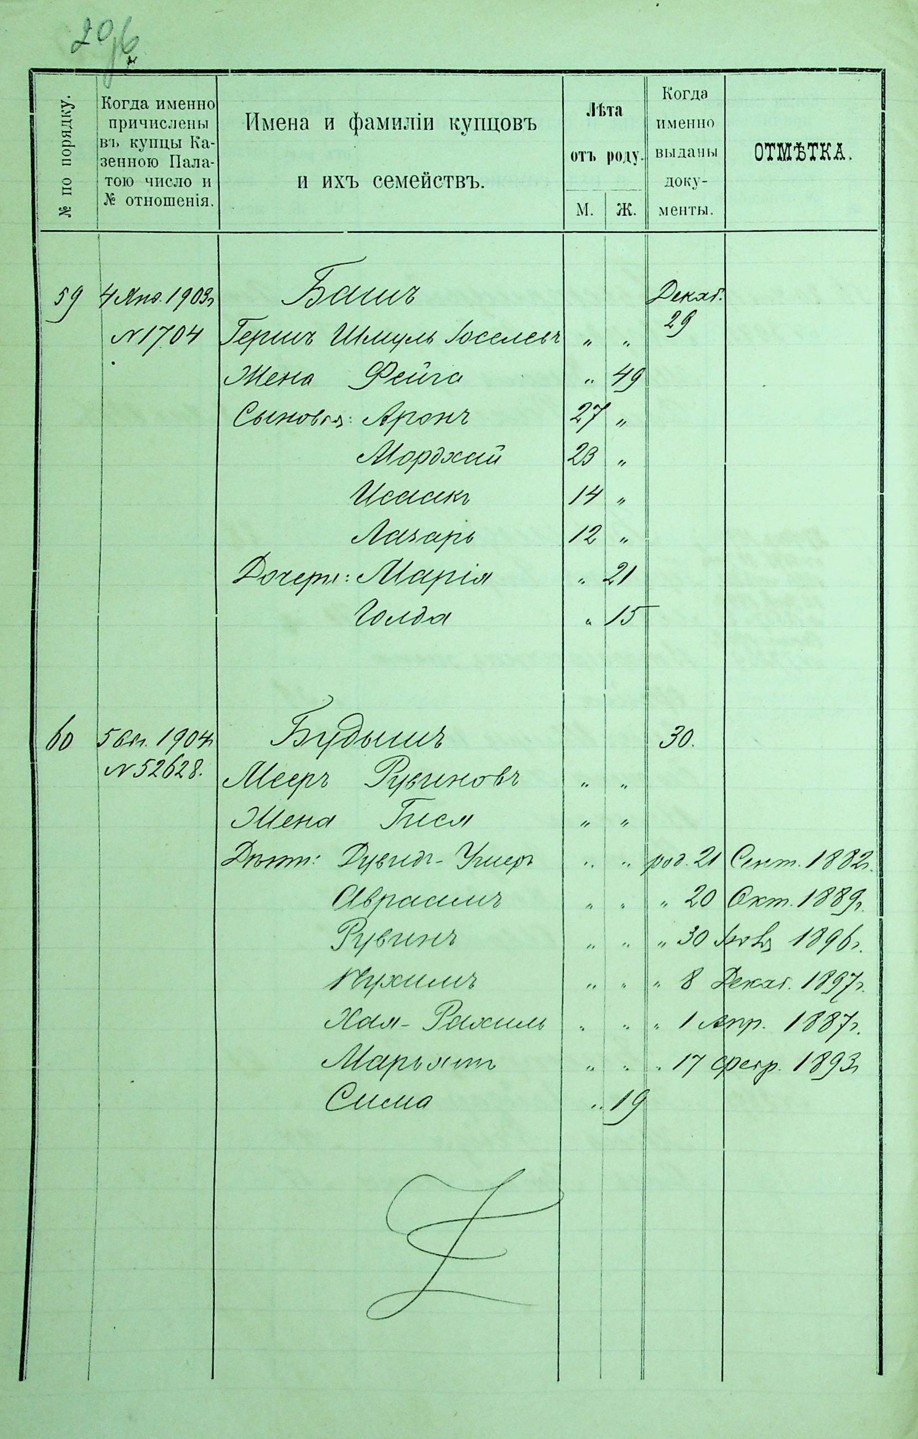 № по порядку.
Когда именно
причислены
въ купцы Ка-
зенною Пала-
тою число и
№ отношенія.
Имена и фамиліи купцовъ
и ихъ семействъ.
Лѣта
отъ роду.
М. Ж.
Когда
именно
выданы
доку-
менты.
ОТМѢТКА.
59 4 Янв. 1903г Башъ Декаб.
29
№1704 Гершъ Шмуль Іоселевъ „ „
Жена Фейга „ 49
Сыновья: Аронъ 27 „
Мордхай 23 „
Исаакъ 14 „
Лазарь 12 „
Дочери: Марія „ 21
Голда „ 15
60 1904г Будышъ 30.
№52628. Мееръ Рувиновъ „ „
Жена Гися „ „
Дѣти: Дувидъ-Ушеръ „ „ род. 21 Сент. 1882г.
Авраамъ „ „ „ 20 Окт. 1889г.
Рувинъ „ „ „ 30 1896г.
Нухимъ „ „ „ 8 Декаб. 1897г.
Хая-Рахиль „ „ „ 1 Апр. 1887г.
Марьямъ „ „ „ 17 Февр. 1893г
Сима „ 19